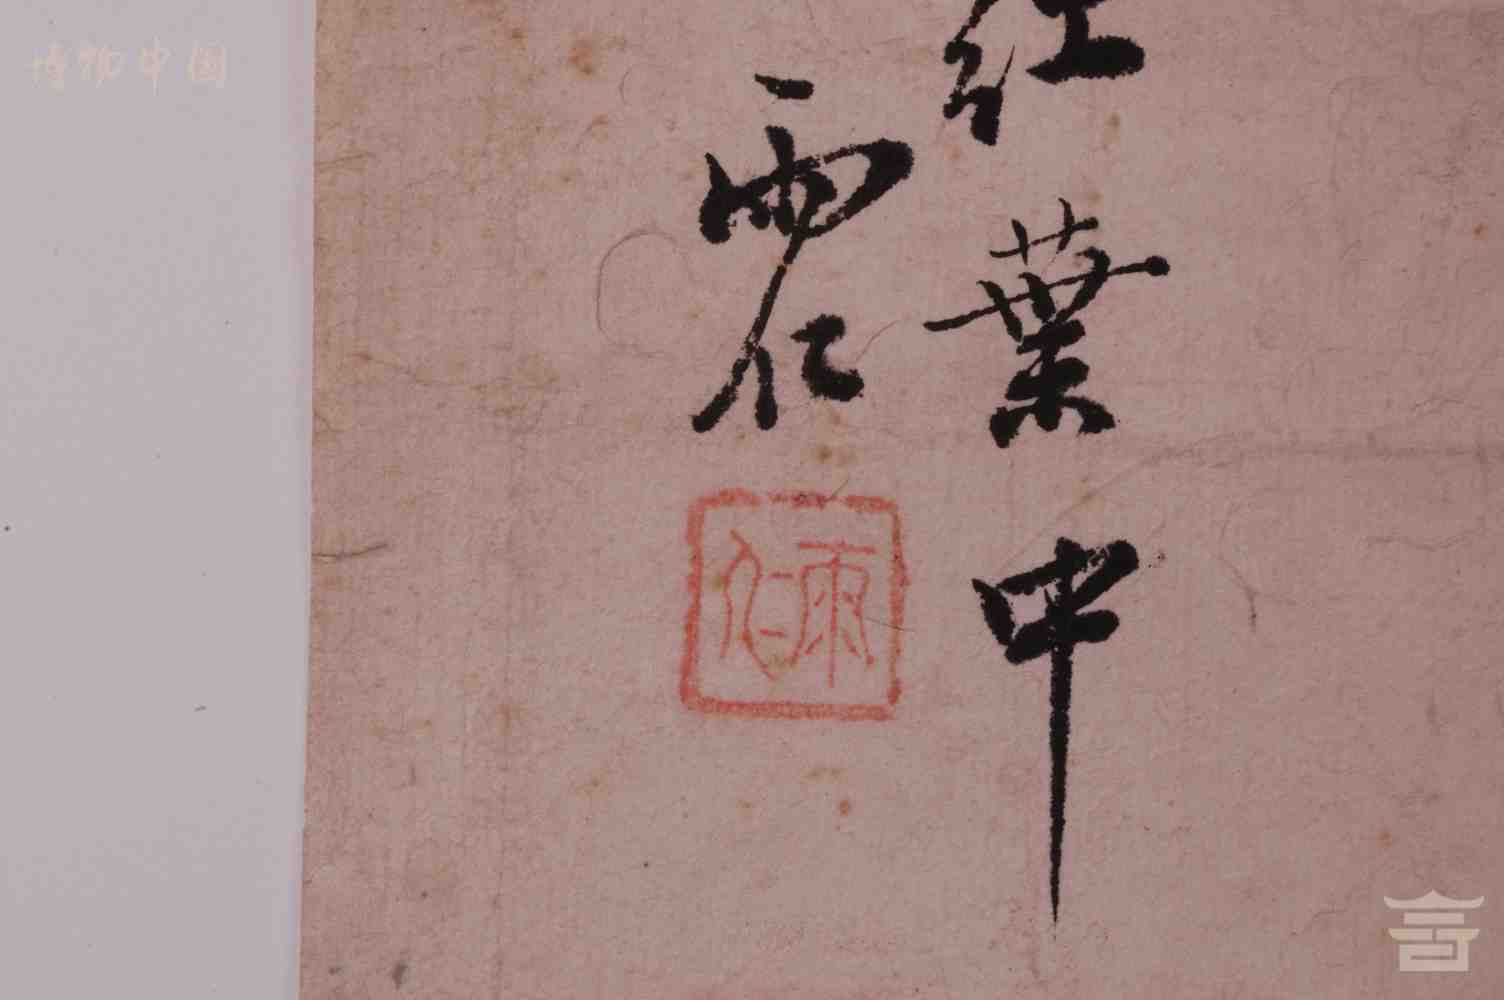 红葉中
雨仁
雨仁
博物中国